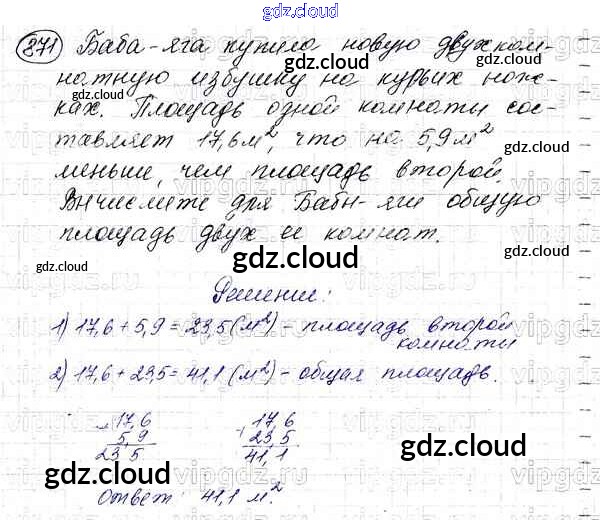 gdz.cloud
gdz.cloud
871 Баба-яга купила новую двухком-
натную избушку на курьих нож-
ках. Площадь одной комнаты сос-
тавляет 17,6 м², что на 5,9 м²
меньше, чем площадь второй.
Вычислите для Бабы-яги общую
площадь двух ее комнат.
gdz.cloud
gdz.cloud
gdz.cloud
gdz.cloud
Решение:
1) 17,6 + 5,9 = 23,5 (м²) - площадь второй
комнаты
2) 17,6 + 23,5 = 41,1 (м²) - общая площадь.
gdz.cloud
+17,6 +17,6
5,9 23,5
23,5 41,1
gdz.cloud gdz.cloud
gdz.cloud
gdz.cloud
Ответ: 41,1 м².
gdz.cloud